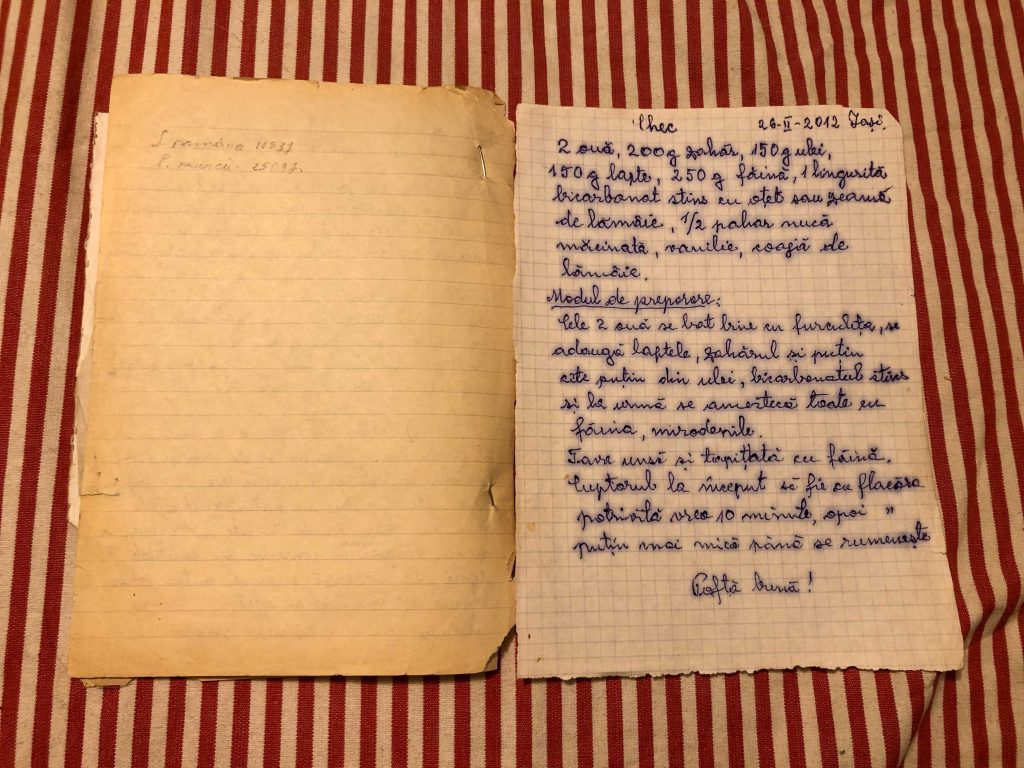 L romana 11537
Chec 26-II-2012 Iași.
2 ouă, 200g zahăr, 150g ulei,
150g lapte, 250g făină, 1 linguriță
bicarbonat stins cu oțet sau zeamă
de lămâie, 1/2 pahar nucă
măcinată, vanilie, coajă de
lămâie.
Modul de preparare:
Cele 2 ouă se bat bine cu furculița, se
adaugă laptele, zahărul și puțin
cîte puțin din ulei, bicarbonatul stins
și la urmă se amestecă toate cu
făina, mirodeniile.
Tava unsă și tapițată cu făină.
Cuptorul la început să fie cu flacăra
potrivită vreo 10 minute, apoi "
puțin mai mică până se rumenește
Poftă bună!